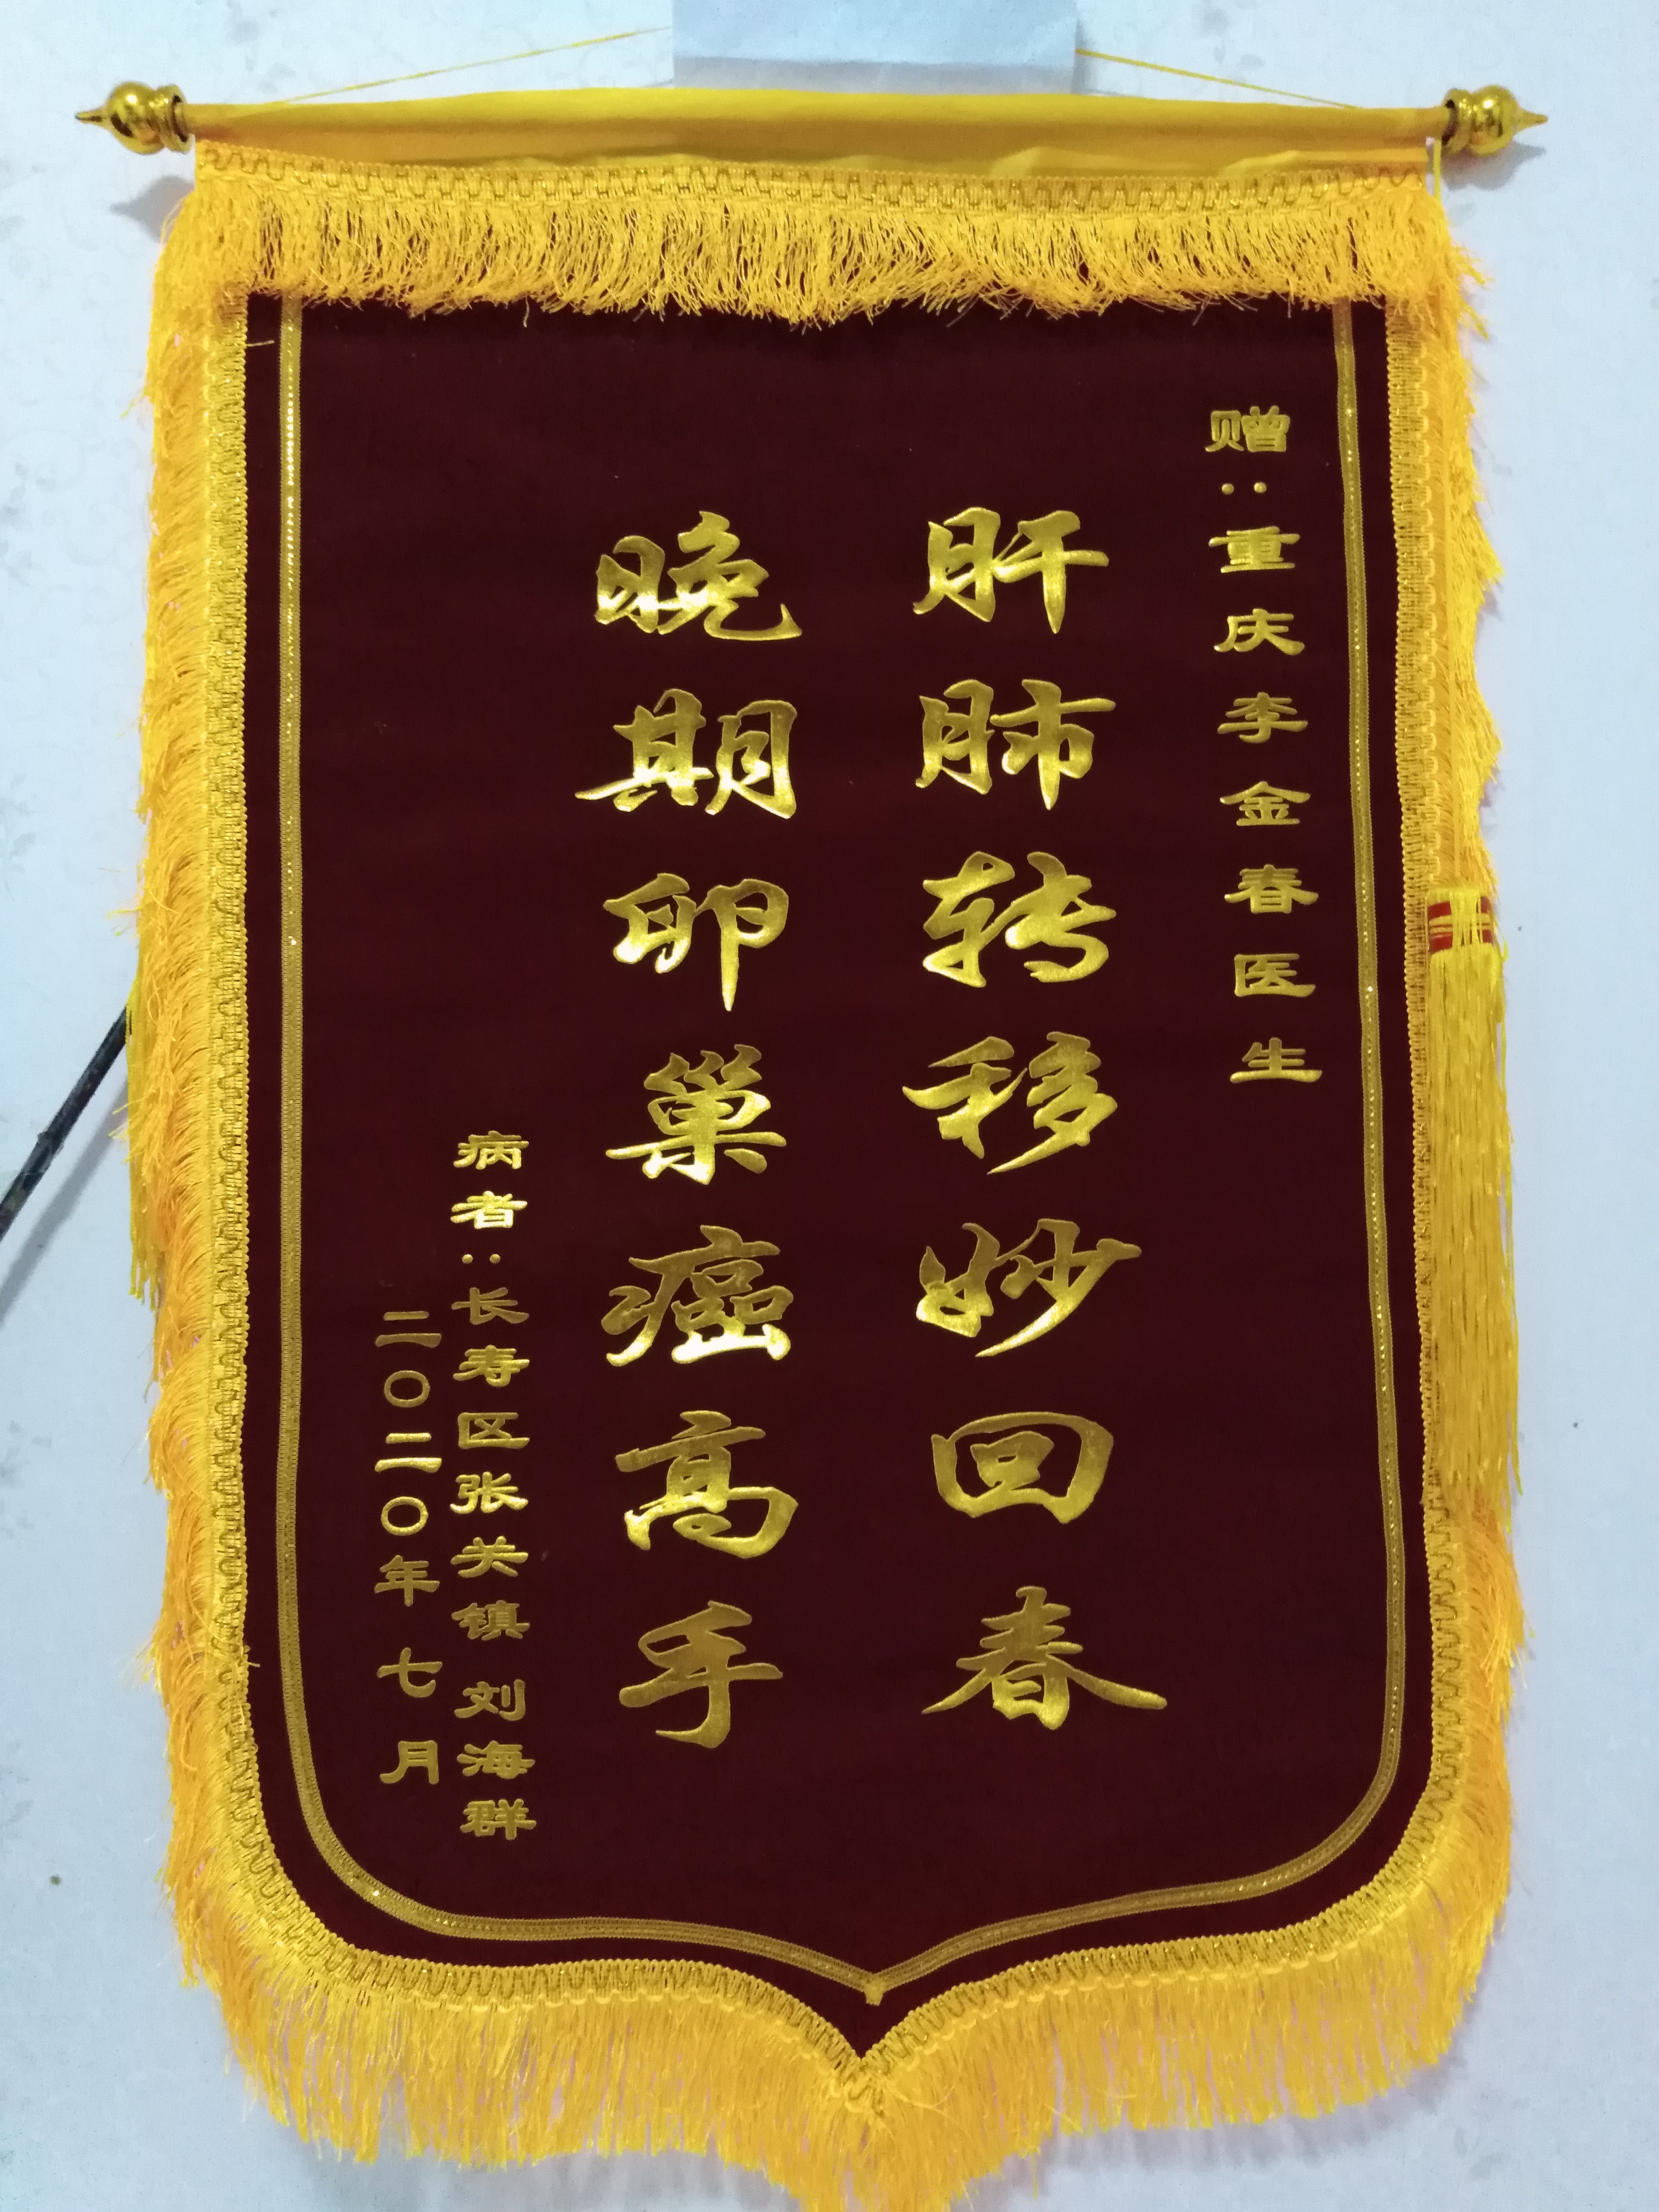 赠：重庆李金春医生
肝肺转移妙回春
晚期卵巢癌高手
病者：长寿区张关镇 刘海群
二〇二〇年七月